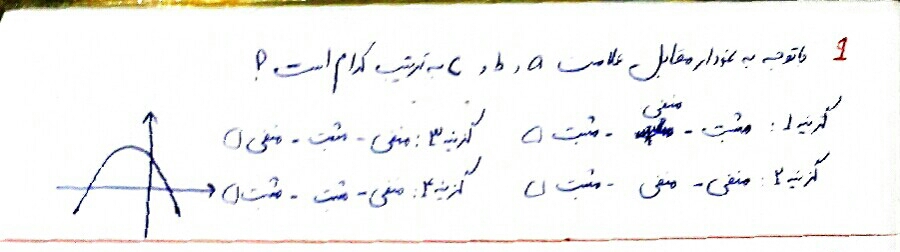 1 باتوجه به نمودار مقابل علامت a , b , c به ترتیب کدام است؟
گزینه ۱: مثبت - منفی - مثبت □ گزینه ۳: منفی - مثبت - منفی □
گزینه ۲: منفی - منفی - مثبت □ گزینه ۴: منفی - مثبت - مثبت □